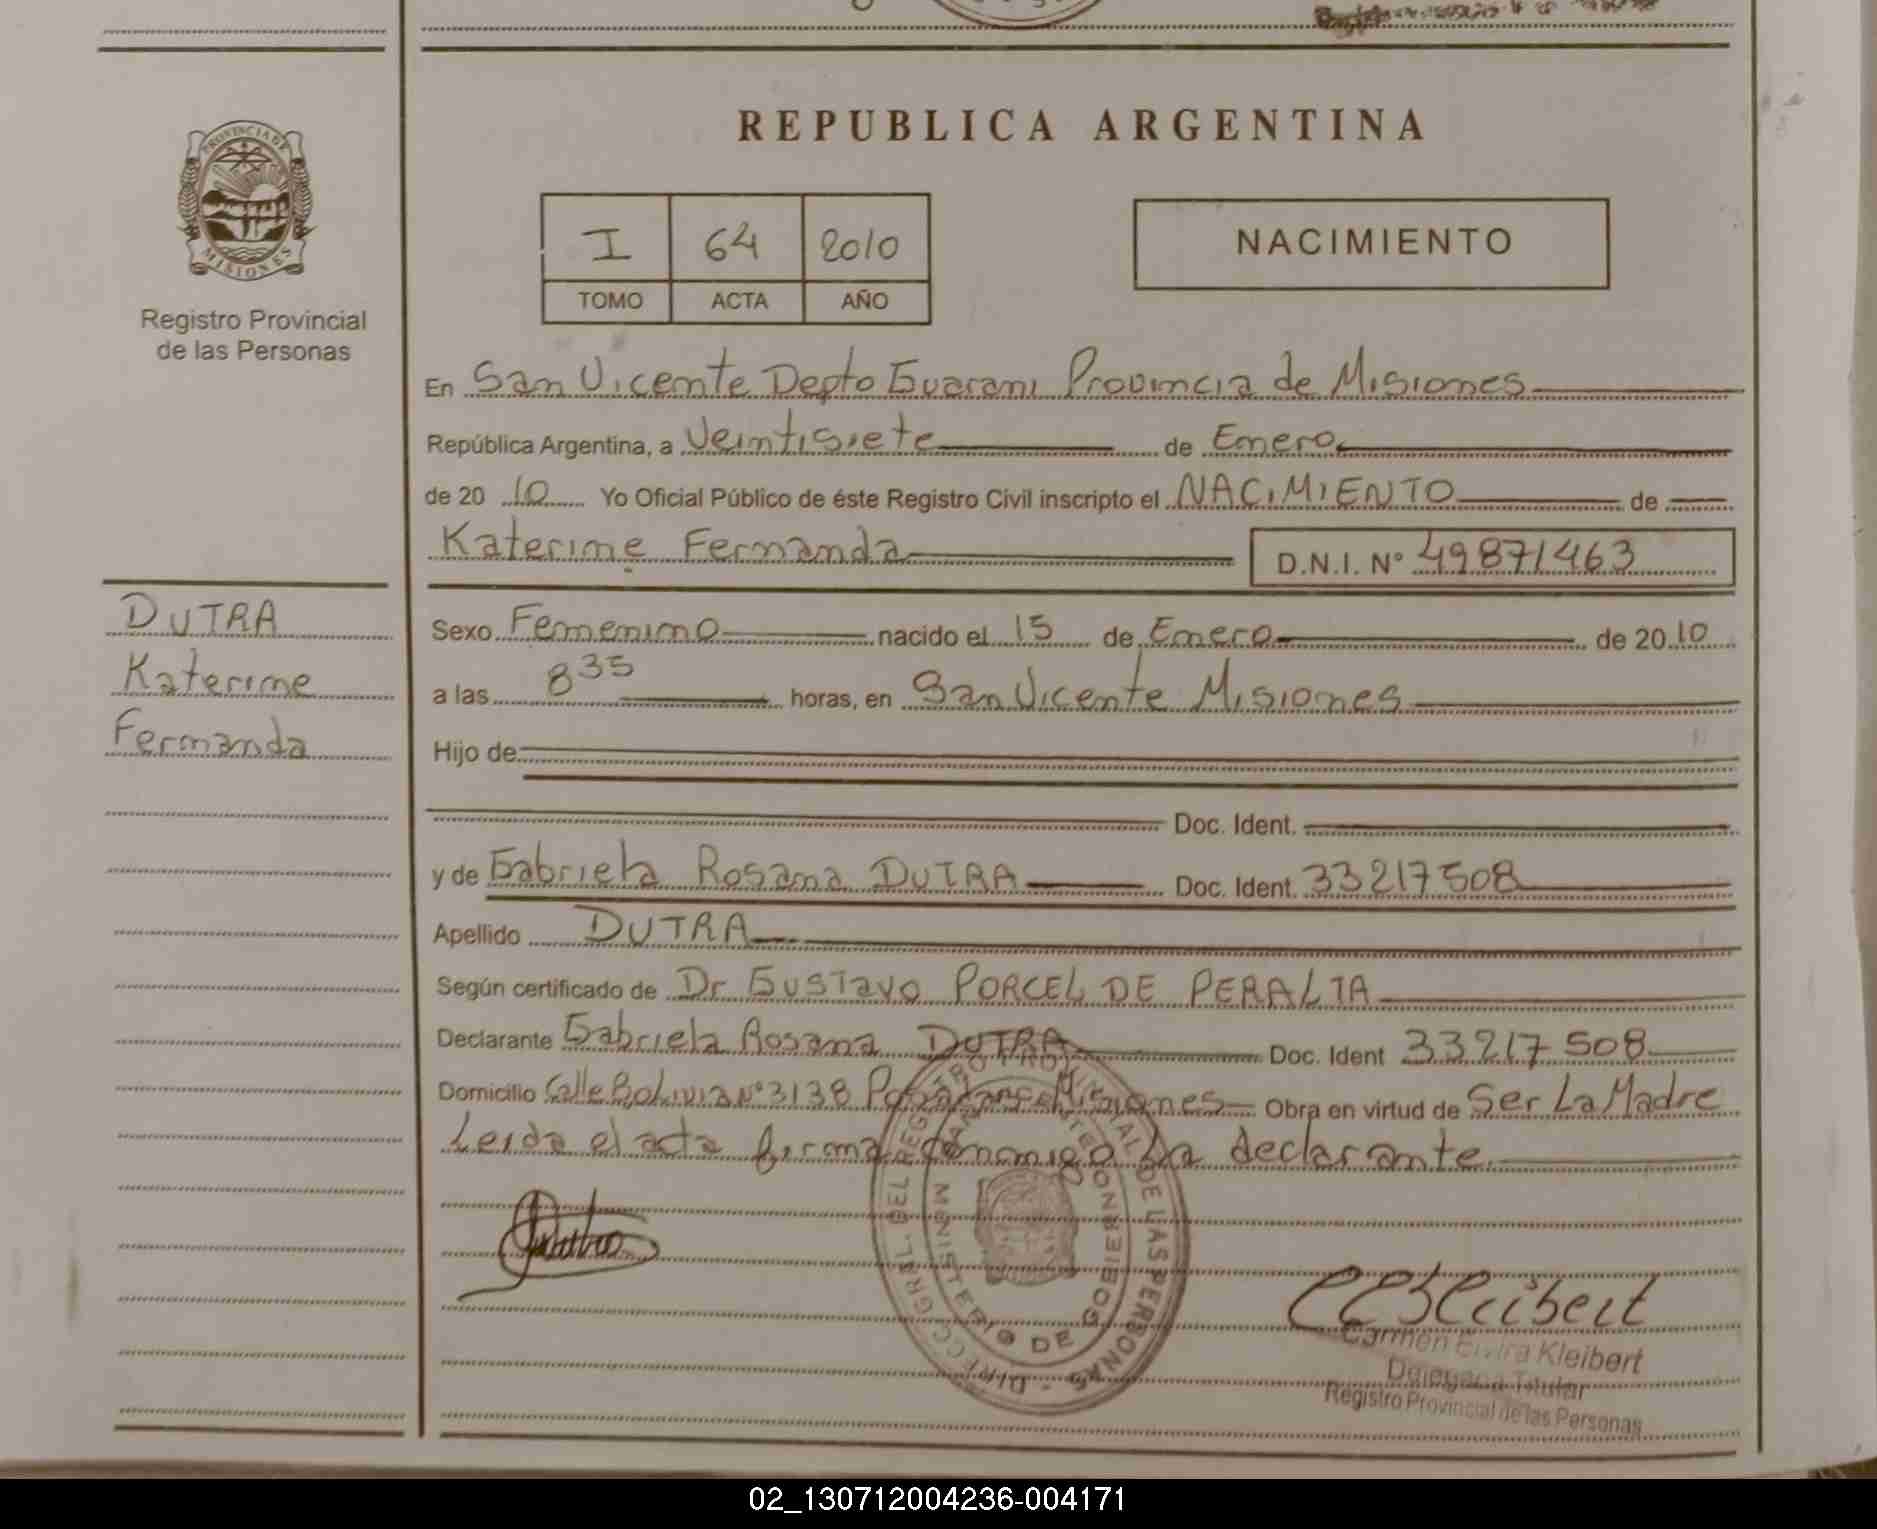 REPUBLICA ARGENTINA
PROVINCIA DE
MISIONES
Registro Provincial
de las Personas
I 64 2010
TOMO ACTA AÑO
NACIMIENTO
En San Vicente Depto Guarani Provincia de Misiones
República Argentina, a Veintisiete de Enero
de 20 10 Yo Oficial Público de éste Registro Civil inscripto el NACIMIENTO de
Katerine Fernanda D.N.I. Nº 49871463
DUTRA
Katerine
Fernanda
Sexo Femenino nacido el 15 de Enero de 20 10
a las 8 35 horas, en San Vicente Misiones
Hijo de
Doc. Ident.
y de Gabriela Rosana DUTRA Doc. Ident. 33217508
Apellido DUTRA
Según certificado de Dr GUSTAVO PORCEL DE PERALTA
Declarante Gabriela Rosana DUTRA Doc. Ident 33217508
Domicilio Calle Bolivia Nº 3138 Misiones Obra en virtud de Ser La Madre
Leida el acta firma conmigo La declarante.
DIRECC. GRAL. DEL REGISTRO PROVINCIAL DE LAS PERSONAS
MINISTERIO DE GOBIERNO
Carmen Elvira Kleibert
Delegada Titular
Registro Provincial de las Personas
02_130712004236-004171